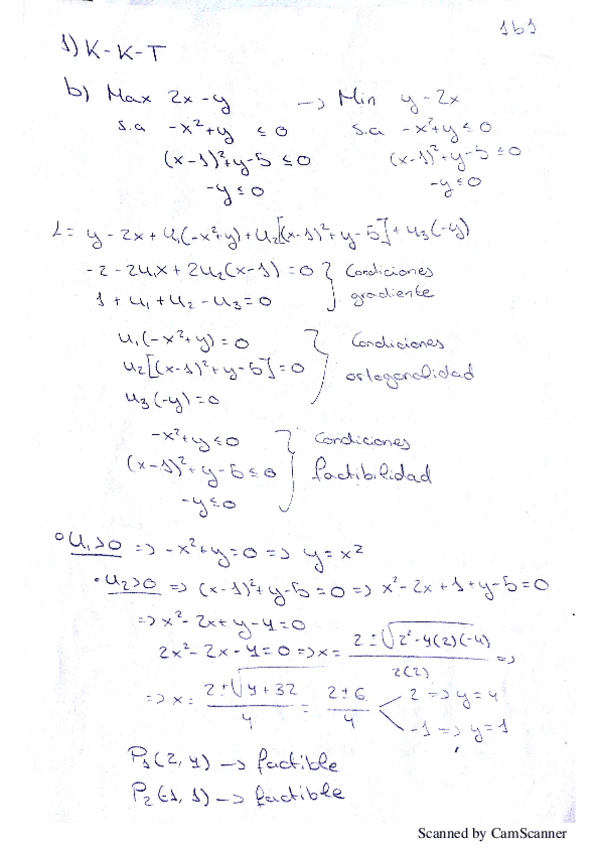 1b1
1) K-K-T
b) Max 2x-y → Min y-2x
s.a -x²+y ≤ 0 s.a -x²+y ≤ 0
(x-1)²+y-5 ≤ 0 (x-1)²+y-5 ≤ 0
-y ≤ 0 -y ≤ 0
L = y-2x+u₁(-x²+y)+u₂[(x-1)²+y-5]+u₃(-y)
-2-2u₁x+2u₂(x-1)=0 } Condiciones
1+u₁+u₂-u₃=0 gradiente
u₁(-x²+y)=0 } Condiciones
u₂[(x-1)²+y-5]=0 ortogonalidad
u₃(-y)=0
-x²+y ≤ 0 } Condiciones
(x-1)²+y-5 ≤ 0 factibilidad
-y ≤ 0
° u₁>0 => -x²+y=0 => y=x²
• u₂>0 => (x-1)²+y-5=0 => x²-2x+1+y-5=0
=> x²-2x+y-4=0
2x²-2x-4=0 => x = (2±√(2²-4(2)(-4)))/(2(2)) =>
=> x = (2±√(4+32))/4 = (2±6)/4 2 => y=4
-1 => y=1
P₁(2,4) → factible
P₂(-1,1) → factible
Scanned by CamScanner